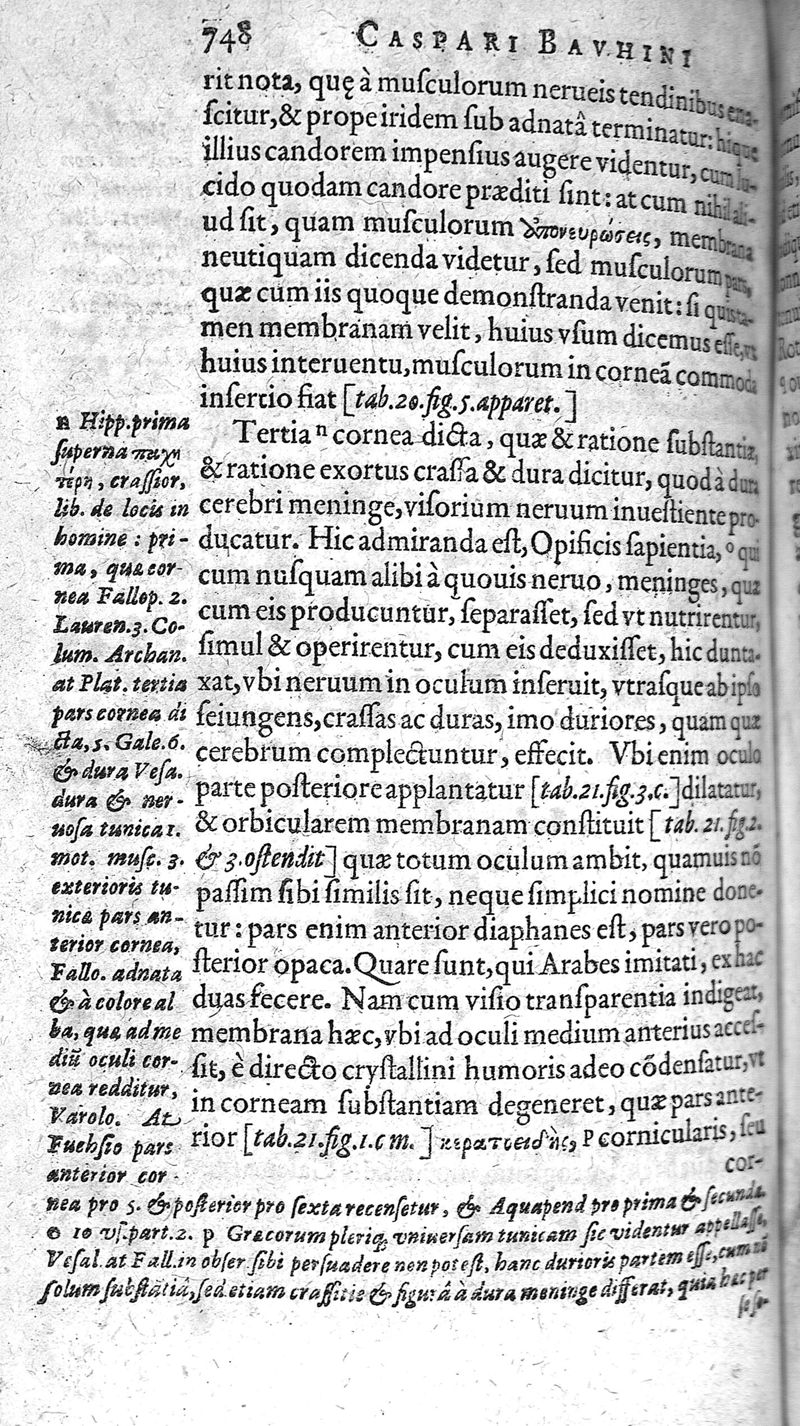 748 CASPARI BAVHINI
rit nota, quę à muſculorum nerueis tendinibus ena-
ſcitur, & prope iridem ſub adnatâ terminatur: hique
illius candorem impenſius augere videntur, cum lu-
cido quodam candore præditi ſint: at cum nihil ali-
ud ſit, quam muſculorum membrana
neutiquam dicenda videtur, ſed muſculorum pars,
quæ cum iis quoque demonſtranda venit: ſi quis ta-
men membranam velit, huius vſum dicemus eſſe, vt
huius interuentu, muſculorum in corneā commoda
inſertio fiat [tab.20.fig.5.apparet.]
Tertia n cornea dicta, quæ & ratione ſubſtantiæ,
& ratione exortus craſſa & dura dicitur, quod à dura
cerebri meninge, viſorium neruum inueſtiente pro-
ducatur. Hic admiranda eſt, Opificis ſapientia, o qui
cum nuſquam alibi à quouis neruo, meninges, quæ
cum eis producuntur, ſeparaſſet, ſed vt nutrirentur,
ſimul & operirentur, cum eis deduxiſſet, hic dunta-
xat, vbi neruum in oculum inſeruit, vtraſque ab ipſo
ſeiungens, craſſas ac duras, imo duriores, quam quæ
cerebrum complectuntur, effecit. Vbi enim oculo
parte poſteriore applantatur [tab.21.fig.3.c.] dilatatur,
& orbicularem membranam conſtituit [tab.21.fig.2.
& 3.oſtendit] quæ totum oculum ambit, quamuis nō
paſſim ſibi ſimilis ſit, neque ſimplici nomine done-
tur: pars enim anterior diaphanes eſt, pars vero po-
ſterior opaca. Quare ſunt, qui Arabes imitati, ex hac
duas fecere. Nam cum viſio tranſparentia indigeat,
membrana hæc, vbi ad oculi medium anterius acceſ-
ſit, è directo cryſtallini humoris adeo cōdenſatur, vt
in corneam ſubſtantiam degeneret, quæ pars ante-
rior [tab.21.fig.1.c m.] κερατοειδὴς, p cornicularis, ſeu
cor-
n Hipp. prima
ſuperna παχυ
τέρη, craſſior,
lib. de locis in
homine: pri-
ma, quæ cor-
nea Fallop. 2.
Lauren. 3. Co-
lum. Archan.
at Plat. tertia
pars cornea di
cta, 5. Gale. 6.
& dura Veſa.
dura & ner-
uoſa tunica 1.
mot. muſc. 3.
exterioris tu-
nicæ pars an-
terior cornea,
Fallo. adnata
& à colore al
ba, quæ ad me
diū oculi cor-
nea redditur,
Varolo. At
Fuchſio pars
anterior cor-
nea pro 5. & poſterior pro ſexta recenſetur, & Aquapend pro prima & ſecunda.
o 10 vſ. part. 2. p Græcorum pleriq; vniuerſam tunicam ſic videntur appellaſſe,
Veſal. at Fall. in obſer. ſibi perſuadere non poteſt, hanc durioris partem eſſe, cum nō
ſolum ſubſtātiâ, ſed etiam craſſitie & figurâ â dura meninge differat, quia hæc per